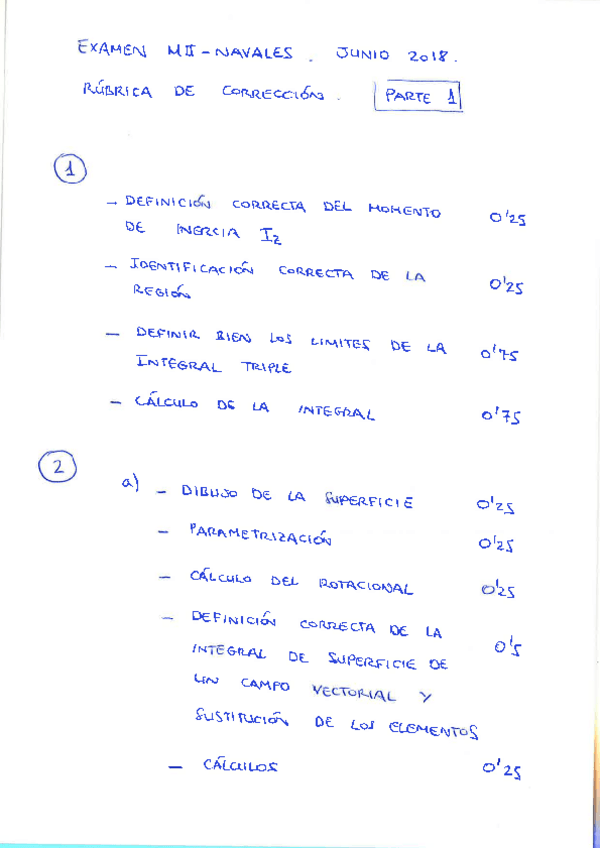 EXAMEN MII - NAVALES . JUNIO 2018.
RÚBRICA DE CORRECCIÓN. PARTE 1
1
- DEFINICIÓN CORRECTA DEL MOMENTO 0'25
DE INERCIA Iz
- IDENTIFICACIÓN CORRECTA DE LA 0'25
REGIÓN
- DEFINIR BIEN LOS LIMITES DE LA 0'75
INTEGRAL TRIPLE
- CÁLCULO DE LA INTEGRAL 0'75
2
a) - DIBUJO DE LA SUPERFICIE 0'25
- PARAMETRIZACIÓN 0'25
- CÁLCULO DEL ROTACIONAL 0'25
- DEFINICIÓN CORRECTA DE LA 0'5
INTEGRAL DE SUPERFICIE DE
UN CAMPO VECTORIAL Y
SUSTITUCIÓN DE LOS ELEMENTOS
- CÁLCULOS 0'25